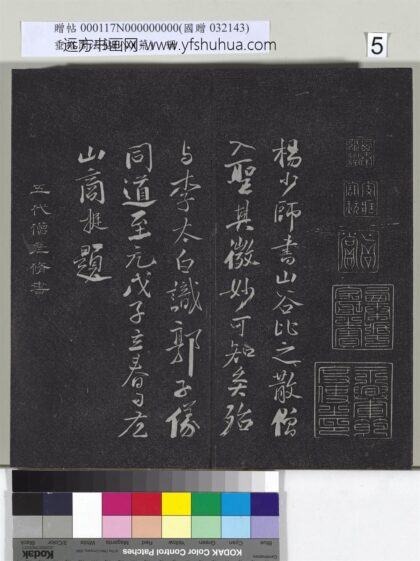 贈帖 000117N000000000(國贈 032143)
远方书画网 www.yfshuhua.com
5
楊少師書山谷比之散僧
入聖其微妙可知矣殆
与李太白識郭子儀
同道至元戊子立春日左
山商挺題
五代僧彥脩書
KODAK Color Control Patches
Blue Cyan Green Yellow Red Magenta White 3/Color Black